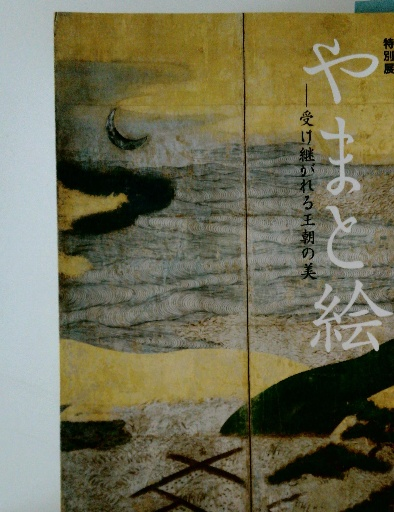 特別展
やまと絵
――受け継がれる王朝の美